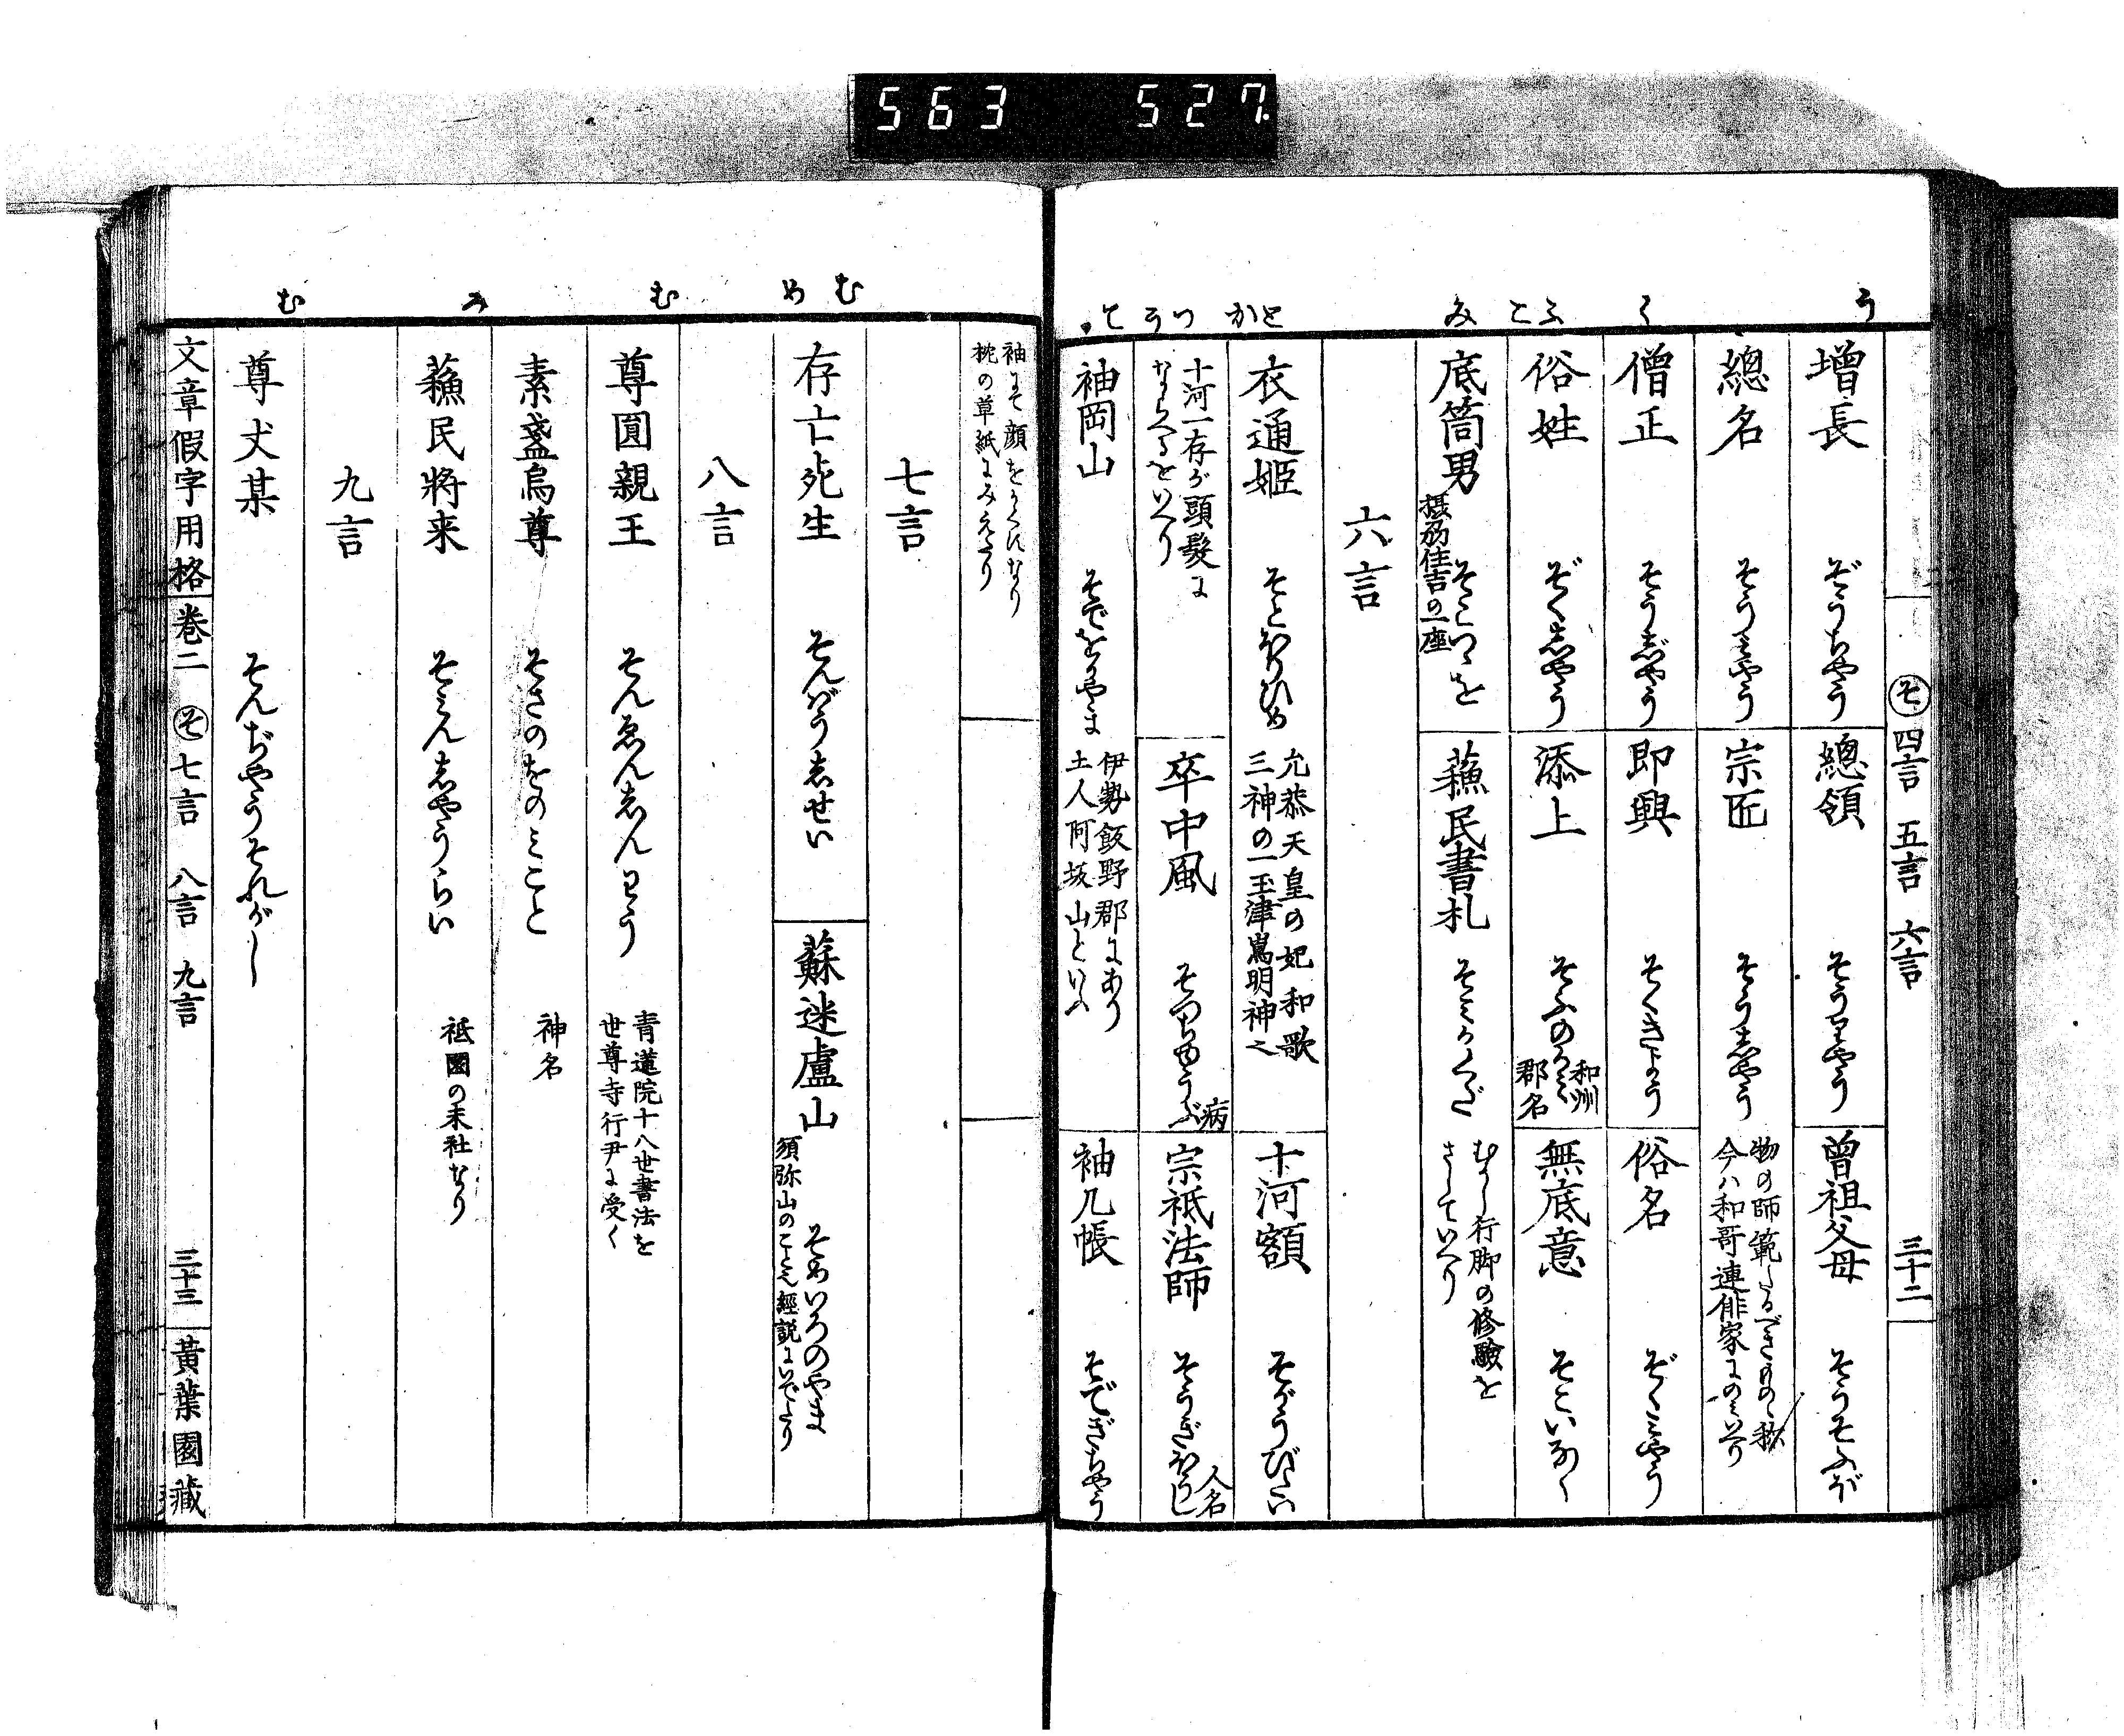 563 527
う
く
ふ
こ
み
と
か
つ
う
て
そ 四言 五言 六言 三十二
增長 ぞうちやう
總領 そうりやう
曾祖父母 そうそふぼ
總名 そうミやう
宗匠 そうしやう
物の師範たるべきものゝ称
今ハ和哥連俳家にのミいへり
僧正 そうじやう
即興 そくきよう
俗名 ぞくミやう
俗姓 ぞくしやう
添上 そふのかミ 和州郡名
無底意 そこいなく
底筒男 そこつゝを 摂刕住吉の一座
蘓民書札 そミんかくさだ
むかし行脚の修験を
さしていへり
六言
衣通姫 そとほりひめ
允恭天皇の妃和歌
三神の一玉津嶌明神也
十河額 そがうびたい
十河一存が頭髮に
ならへるをいへり
卒中風 そつちゆうぶ 病
宗祇法師 そうぎほうし 人名
袖岡山 そでをかやま
伊勢飯野郡にあり
土人阿坂山といふ
袖几帳 そでぎちやう
む
め
む
み
む
袖にて顔をかくすなり
枕の草紙にみえたり
七言
存亡死生 そんばうしせい
蘇迷盧山 そめいろのやま
須弥山のこと也經説にいでたり
八言
尊圓親王 そんゑんしんわう
青蓮院十八世書法を
世尊寺行尹に受く
素盞烏尊 そさのをのミこと 神名
蘓民將来 そミんしやうらい 祗園の末社なり
九言
尊丈某 そんぢやうそれがし
文章假字用格 卷二 そ 七言 八言 九言 三十三 黃葉園藏